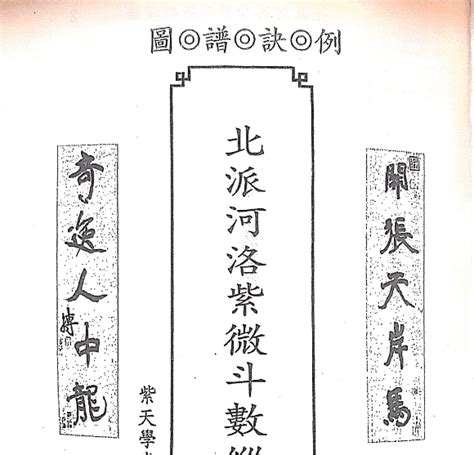 圖◎譜◎訣◎例
開張天岸馬
北派河洛紫微斗數
紫天學
奇逸人中龍